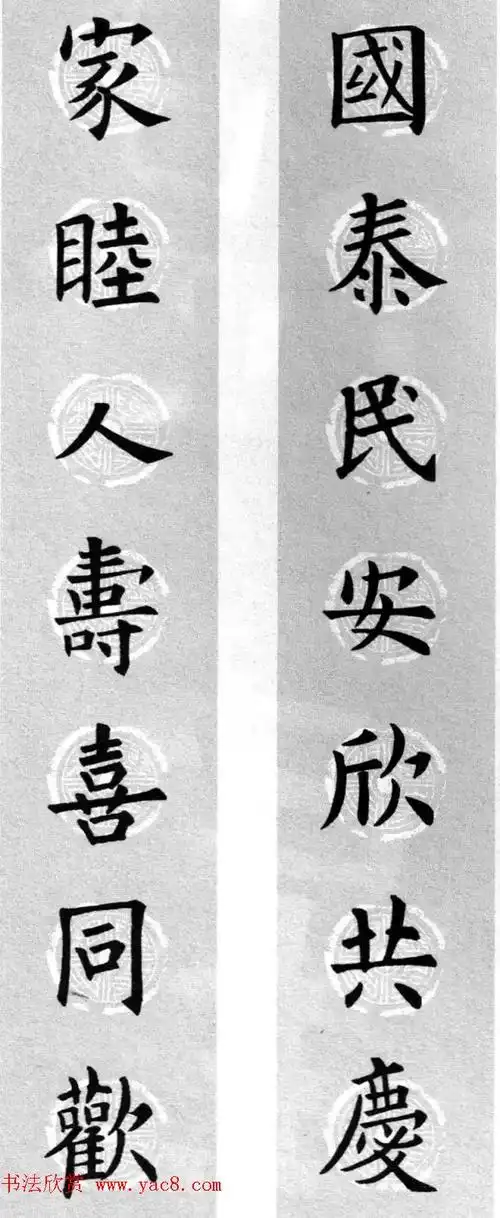 國泰民安欣共慶
家睦人壽喜同歡
书法欣赏 www.yac8.com